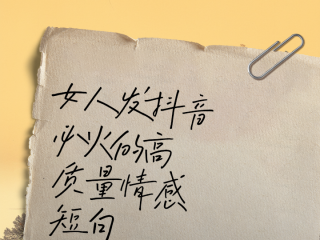 女人发抖音
必火的高
质量情感
短句